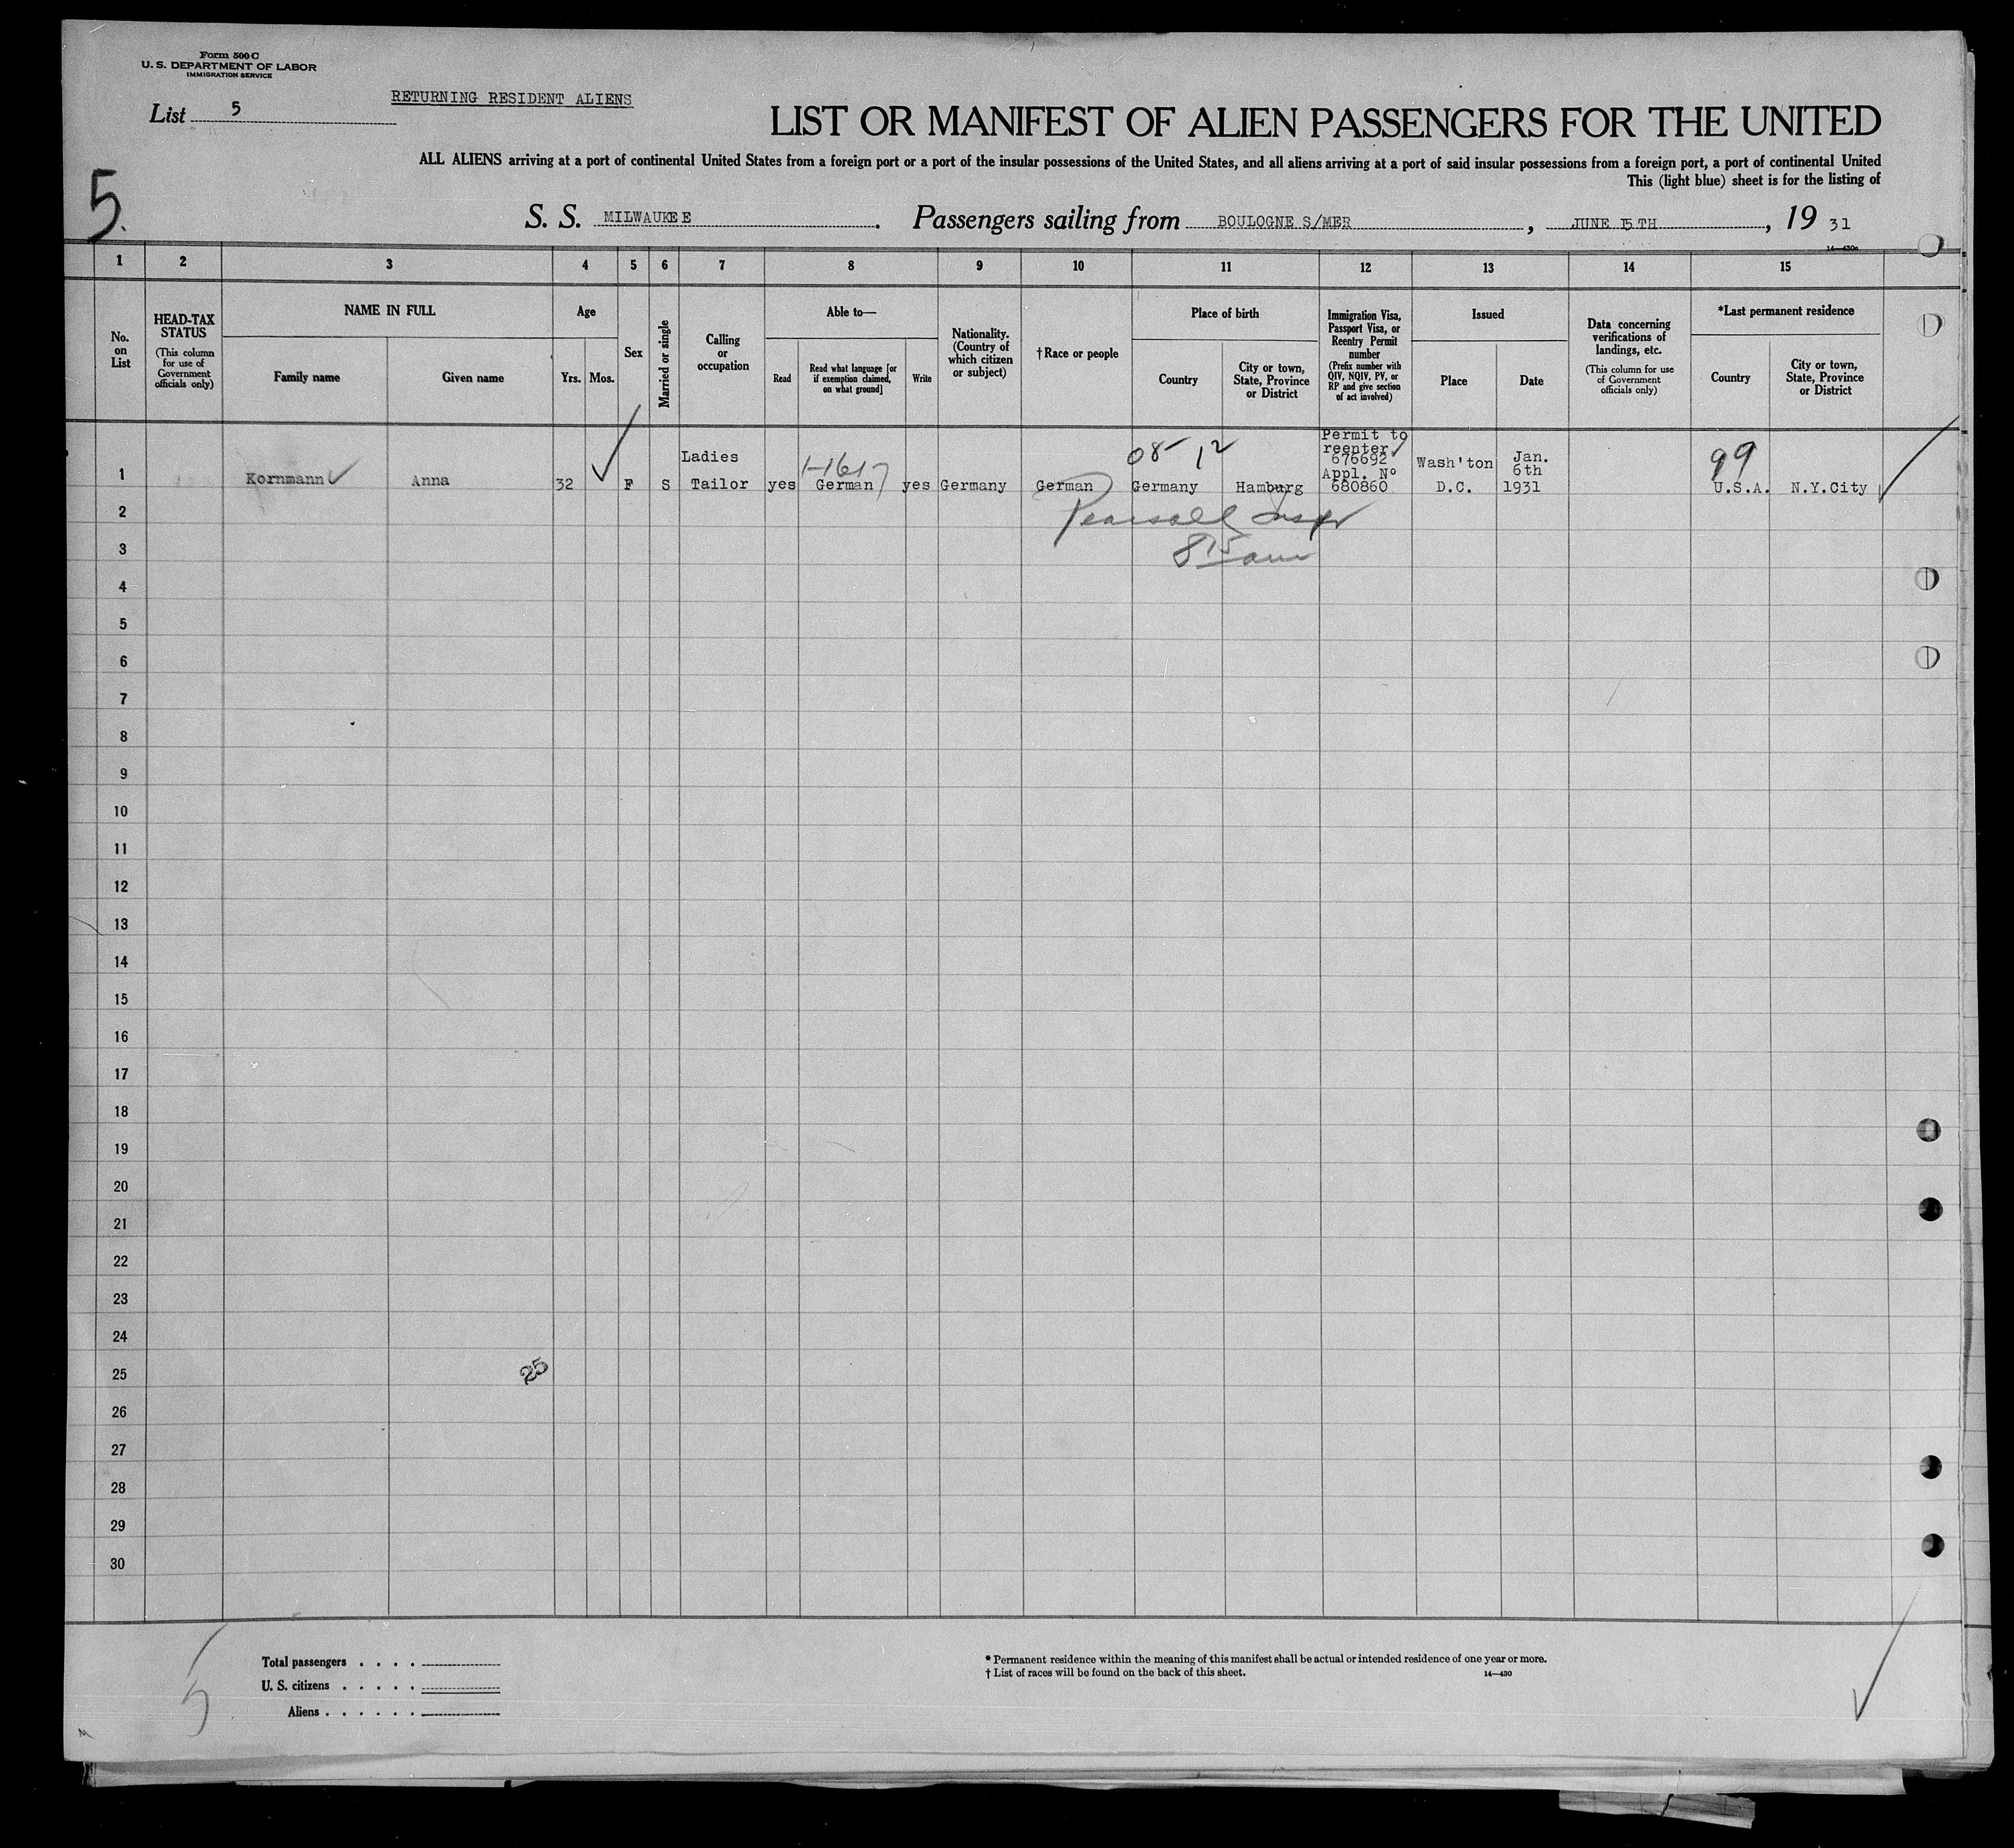 Form 500 C
U. S. DEPARTMENT OF LABOR
IMMIGRATION SERVICE
List 5
RETURNING RESIDENT ALIENS
LIST OR MANIFEST OF ALIEN PASSENGERS FOR THE UNITED
ALL ALIENS arriving at a port of continental United States from a foreign port or a port of the insular possessions of the United States, and all aliens arriving at a port of said insular possessions from a foreign port, a port of continental United
This (light blue) sheet is for the listing of
5.
S. S. MILWAUKEE. Passengers sailing from BOULOGNE S/MER, JUNE 15TH, 19 31
14—430a
1 2 3 4 5 6 7 8 9 10 11 12 13 14 15
No. on List
HEAD-TAX STATUS
(This column for use of Government officials only)
NAME IN FULL
Family name
Given name
Age
Yrs.
Mos.
Sex
Married or single
Calling or occupation
Able to—
Read
Read what language [or if exemption claimed, on what ground]
Write
Nationality. (Country of which citizen or subject)
†Race or people
Place of birth
Country
City or town, State, Province or District
Immigration Visa, Passport Visa, or Reentry Permit number
(Prefix number with QIV, NQIV, PV, or RP and give section of act involved)
Issued
Place
Date
Data concerning verifications of landings, etc.
(This column for use of Government officials only)
*Last permanent residence
Country
City or town, State, Province or District
1
Kornmann
Anna
32
F
S
Ladies
Tailor
yes
German
yes
Germany
German
08- 12
Germany
Hamburg
Permit to
reenter
676692
Appl. Nº
680860
Wash'ton
D.C.
Jan.
6th
1931
99
U.S.A.
N.Y.City
Pearsall Inspr
8 15 am
2
3
4
5
6
7
8
9
10
11
12
13
14
15
16
17
18
19
20
21
22
23
24
25
25
26
27
28
29
30
Total passengers . . . .
U. S. citizens . . . . .
Aliens . . . . . .
* Permanent residence within the meaning of this manifest shall be actual or intended residence of one year or more.
† List of races will be found on the back of this sheet.
14—430
5